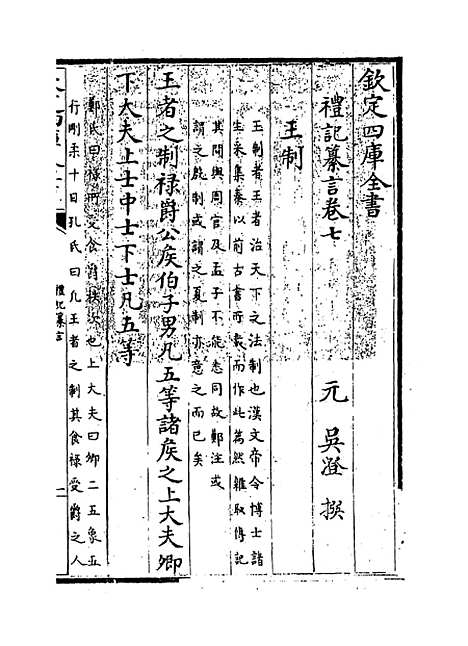 欽定四庫全書
禮記纂言卷七
元 吳澄 撰
王制
王制者王者治天下之法制也漢文帝令博士諸
生采集秦以前古書所載而作此篇然雜取傳記
其間與周官及孟子不能悉同故鄭注或
謂之殷制或謂之夏制亦意之而已矣
王者之制禄爵公侯伯子男凡五等諸侯之上大夫卿
下大夫上士中士下士凡五等
鄭氏曰禄所受食爵秩次也上大夫曰卿二五象五
行剛柔十日孔氏曰凡王者之制其食禄受爵之人
禮記纂言
一